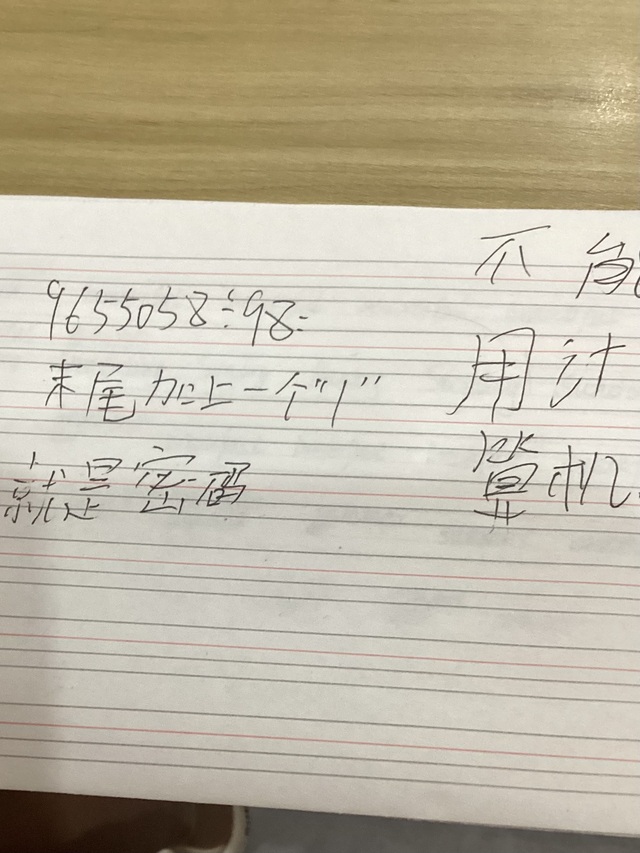 9655058÷98=
末尾加上一个"1"
就是密码
不能
用计
算机